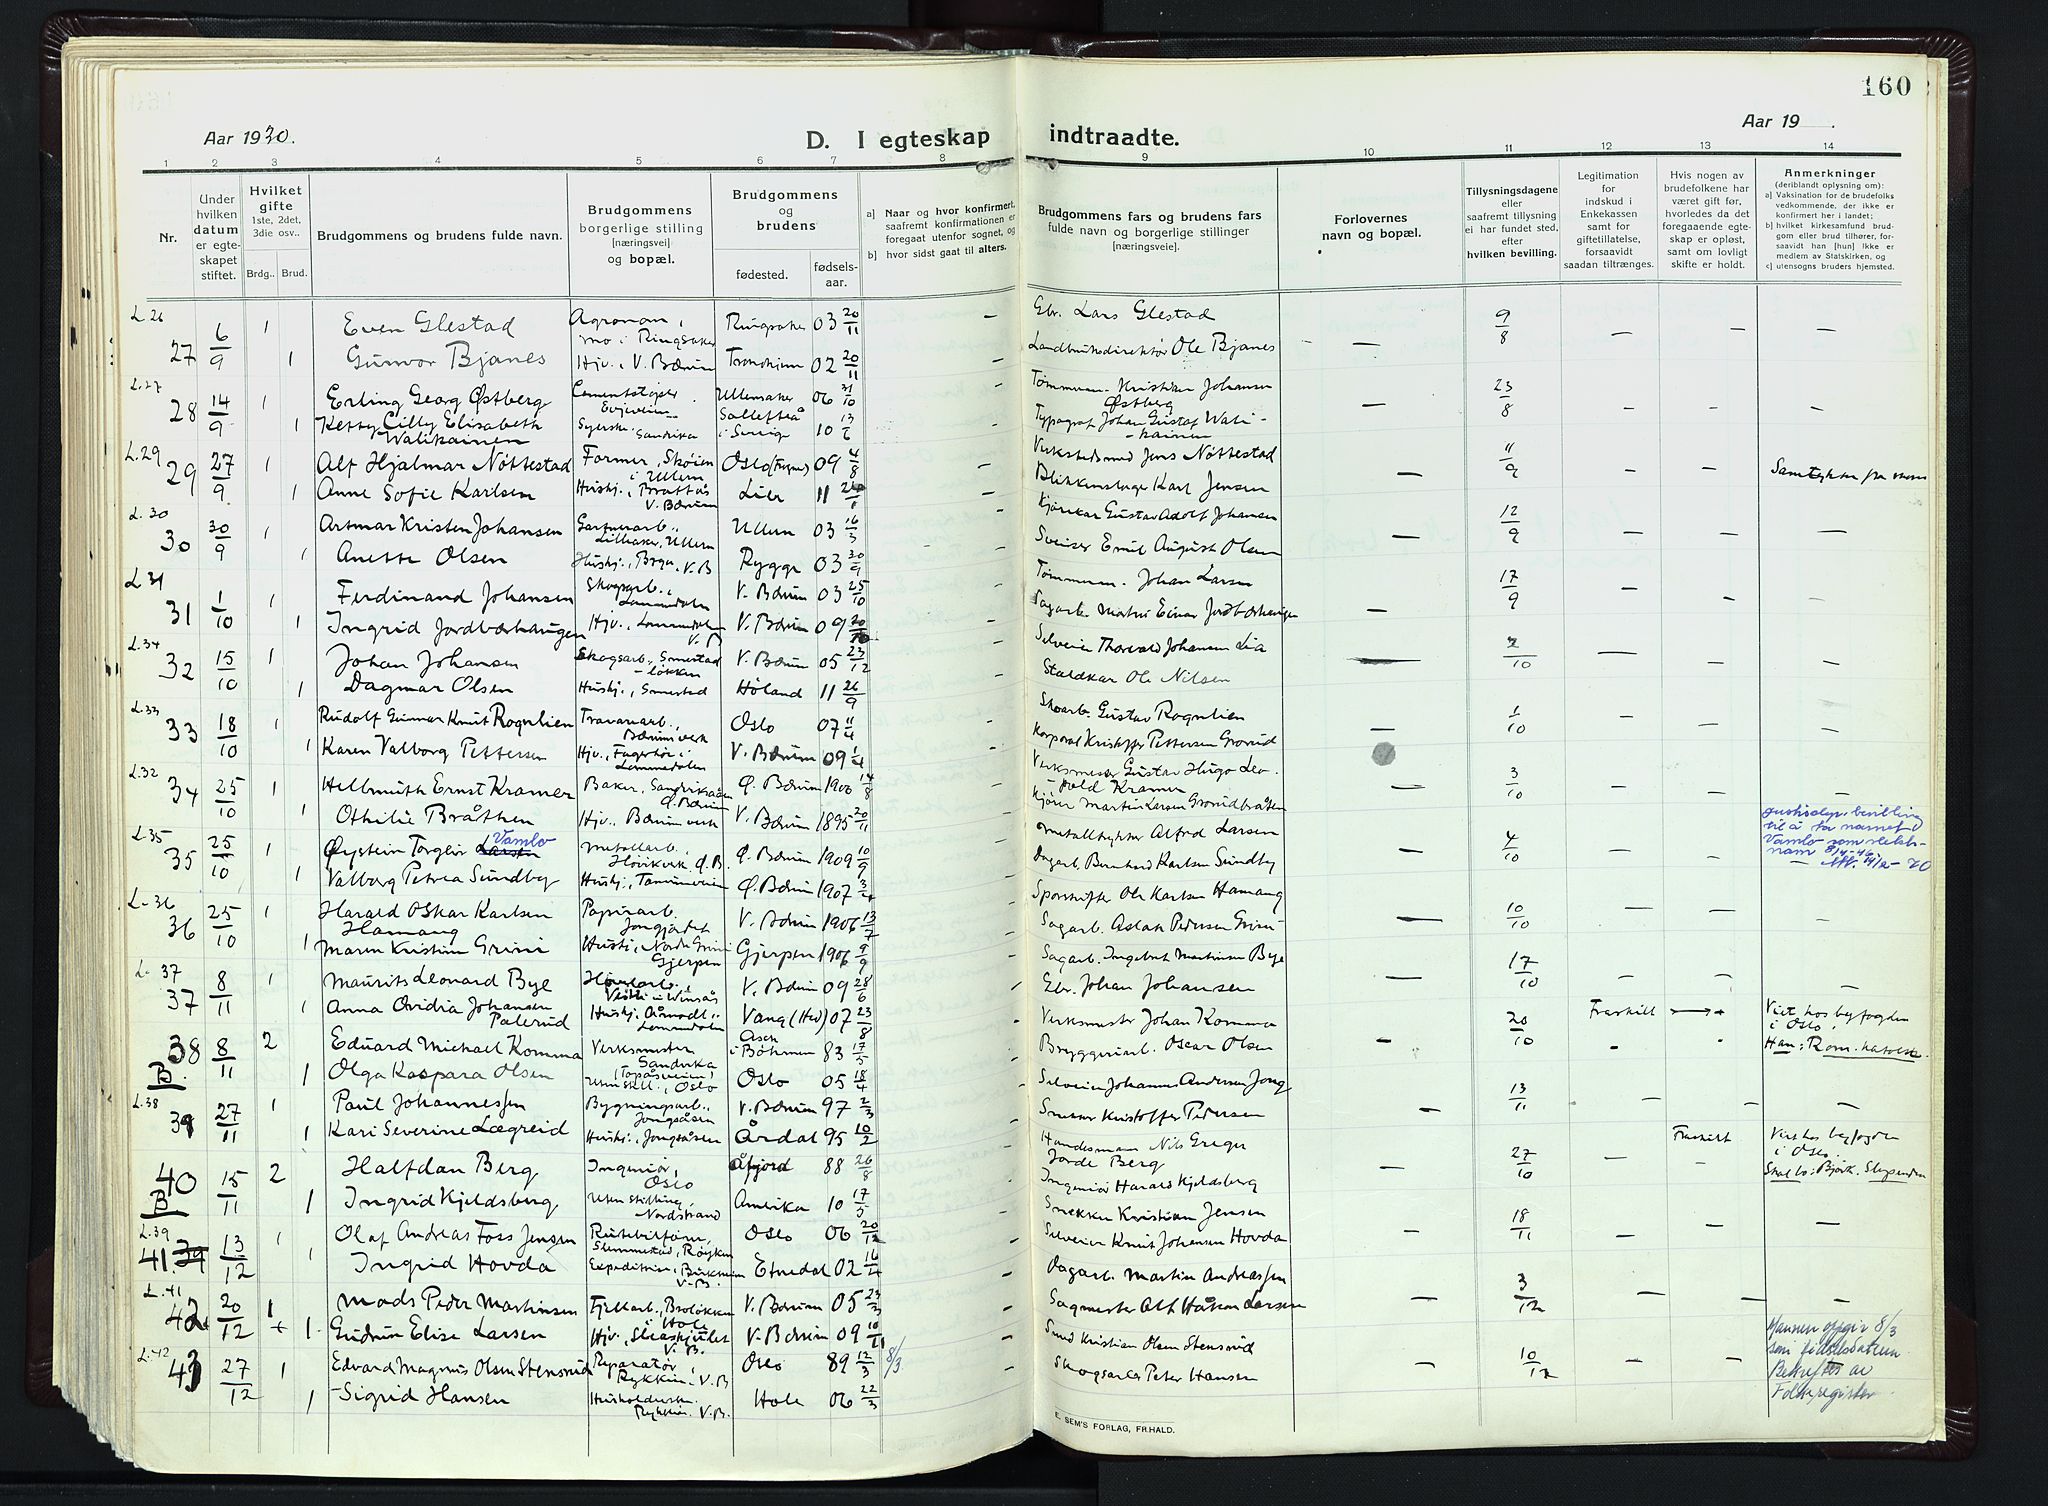 160
Aar 1930.
D. I egteskap indtraadte.
Aar 19 .
1 2 3 4 5 6 7 8 9 10 11 12 13 14
Nr.
Under hvilken datum er egteskapet stiftet.
Hvilket gifte 1ste, 2det, 3die osv..
Brdg.. Brud.
Brudgommens og brudens fulde navn.
Brudgommens borgerlige stilling [næringsvei] og bopæl.
Brudgommens og brudens
fødested. fødsels-aar.
a] Naar og hvor konfirmert, saafremt konfirmationen er foregaat utenfor sognet, og
b] hvor sidst gaat til alters.
Brudgommens fars og brudens fars fulde navn og borgerlige stillinger [næringsveie].
Forlovernes navn og bopæl.
Tillysningsdagene eller saafremt tillysning ei har fundet sted, efter hvilken bevilling.
Legitimation for indskud i Enkekassen samt for giftetillatelse, forsaavidt saadan tiltrænges.
Hvis nogen av brudefolkene har været gift før, hvorledes da det foregaaende egteskap er opløst, samt om lovligt skifte er holdt.
Anmerkninger (deriblandt oplysning om):
a) Vaksination for de brudefolks vedkommende, der ikke er konfirmert her i landet;
b) hvilket kirkesamfund brudgom eller brud tilhører, forsaavidt han [hun] ikke er medlem av Statskirken, og
c) utensogns bruders hjemsted.
L.26
27 6/9 1 Even Glestad Agronom, Mo i Ringsaker Ringsaker 03 20/11 – Gbr. Lars Glestad 9/8 – – –
1 Gunvor Bjanes Hjv., V. Bærum Trondhjem 02 20/11 – Landbruksdirektør Ole Bjanes –
L.27
28 14/9 1 Erling Georg Østberg Cementstøper Evjeveien Ullensaker 06 31/10 – Tømmerm. Kristian Johansen Østberg 23/8 – – –
1 Ketty Cilly Elisabeth Walikainen Syerske, Sandvika Sollefteå i Sverige 10 13/6 Typograf Johan Gustaf Walikainen –
L.29
29 27/9 1 Alf Hjalmar Nöttestad Former, Skøien i Ullern Oslo (Frogner) 09 4/8 – Verkstedsmed Jens Nöttestad 11/9 – – Samtykke fra moren
1 Anne Sofie Karlsen Hushj., Brattås V. Bærum Lier 11 – Blikkenslager Karl Jensen –
L.30
30 30/9 1 Artmar Kristen Johansen Gartnerarb., Lilleaker, Ullern Ullern 03 16/3 – Kjørekar Gustav Adolf Johansen 12/9 – – –
1 Anette Olsen Hushj., Bryn, V.B Rygge 03 30/9 – Sveiser Emil August Olsen –
L.31
31 1/10 1 Ferdinand Johansen Skogsarb., Lommedalen V. Bærum 03 25/10 – Tømmerm. Johan Larsen 17/9 – – –
1 Ingrid Jordbærhaugen Hjv., Lommedalen V.B V. Bærum 09 20/10 – Sagarb. Martin Einar Jordbærhaugen –
L.34
32 15/10 1 Johan Johansen Skogsarb., Smestadløkken V. Bærum 05 23/12 – Selveier Thorvald Johansen Lia 2/10 – – –
1 Dagmar Olsen Hushj., Smestad Høland 11 26/9 Staldkar Ole Nilsen –
L.33
33 18/10 1 Rudolf Gunnar Knut Rognlien Travarearb., Bærums verk Oslo 07 11/4 – Skoarb. Gustav Rognlien 1/10 – – –
1 Karen Valborg Pettersen Hjv., Fagerhøi i Lommedalen V. Bærum 09 1/4 – Korporal Kristoffer Pettersen Grorud –
L.32
34 25/10 1 Hellmuth Ernst Kramer Baker, Sandviksåsen Ø. Bærum Ø. Bærum 1900 14/8 – Verksmester Gustav Hugo Leopold Kramer 3/10 – – –
1 Othilie Bråthen Hjv., Bærums verk V. Bærum 1895 20/11 – Kjører Martin Larsen Grorudbråten –
L.35
35 25/10 1 Øystein Torgeir Larsen Vamlo Metallarb. Høvikvik Ø. B. Ø. Bærum 1909 10/9 – Metalltrykker Alfred Larsen 4/10 – – Justisdep. bevilling til å ta navnet Vamlo som slektsnavn 8/4-46
1 Valborg Petrea Sundby Hushj., Tanumveien Ø. Bærum 1907 – Dagarb. Bernhard Karlsen Sundby –
L.36
36 25/10 1 Harald Oskar Karlsen Hamang Papirarb. Jongjordet V. Bærum 1906 13/7 – Sporskifter Ole Karlsen Hamang 10/10 – – –
1 Maren Kristine Grini Hushj., Nordre Grini Gjerpen Gjerpen 1906 9/9 – Sagarb. Aslak Pedersen Grini –
L.37
37 8/11 1 Maurits Leonard Bye V. Bærum 09 28/6 – Sagarb. Ingebret Martinsen Bye 17/10 – – –
1 Anna Ovidia Johansen Palerud Hushj. Åmodt, Lommedalen Vang (Hed) 07 23/8 – Gbr. Johan Johansen –
38 B. 8/11 2 Eduard Michael Komma Verksmester Sandvika (Topåsveien) Asch i Böhmen 83 17/5 – Verksmester Johan Komma 20/10 Fraskilt Viet hos byfogden i Oslo. Han: Rom. katolsk.
1 Olga Kaspara Olsen Uten still., Oslo Oslo 05 18/4 – Bryggeriarb. Oscar Olsen –
L.38
39 27/11 1 Paul Johannessen Bygningsarb., Jongsåsen V. Bærum 97 2/3 – Selveier Johannes Andersen Jong 13/11 – – –
1 Kari Severine Lægreid Hushj., Jongsåsen Årdal 95 10/2 – Smeear Kristoffer Pedersen –
40 B 15/11 2 Halfdan Berg Ingeniør, Oslo Åfjord 88 26/8 – Handelsmann Nils Greger Jorde Berg 27/10 – Fraskilt Viet hos byfogden i Oslo. Skal bo: Bjørk. Slependen
1 Ingrid Kjeldsberg Uten stilling, Nordstrand Amerika 10 17/5 – Ingeniør Harald Kjeldsberg –
L.39
41 39 13/12 1 Olaf Andreas Foss Jensen Rutebileier, Slemmestad, Røyken Oslo 06 20/12 – Snekker Kristian Jensen 18/11 – – –
1 Ingrid Hovda Expeditrise, Birkheim V.B. Etnedal 02 16/4 – Selveier Knut Johansen Hovda –
L.41
42 20/12 1 Mads Peder Martinsen Fjellarb., Broløkken i Hole V. Bærum 05 23/3 – Dagarb. Martin Andreassen 3/12 – – –
1 Gudrun Elise Larsen Hjv., V.B. V. Bærum 09 10/11 – Sagmester Alf Håkon Larsen –
L.42
43 27/12 1 Edvard Magnus Olsen Stensrud Reparatør, Rykkin, V.B Oslo 89 12/3 8/3 Smed Kristian Olsen Stensrud 10/12 – – Mannen oppgir 8/3 som fødselsdatum. Bekreftes av Folkeregister
1 Sigrid Hansen Husholderske Rykkin, V.B. Hole 06 22/3 Skogsarb. Peter Hansen –
E. SEM'S FORLAG, FR.HALD.